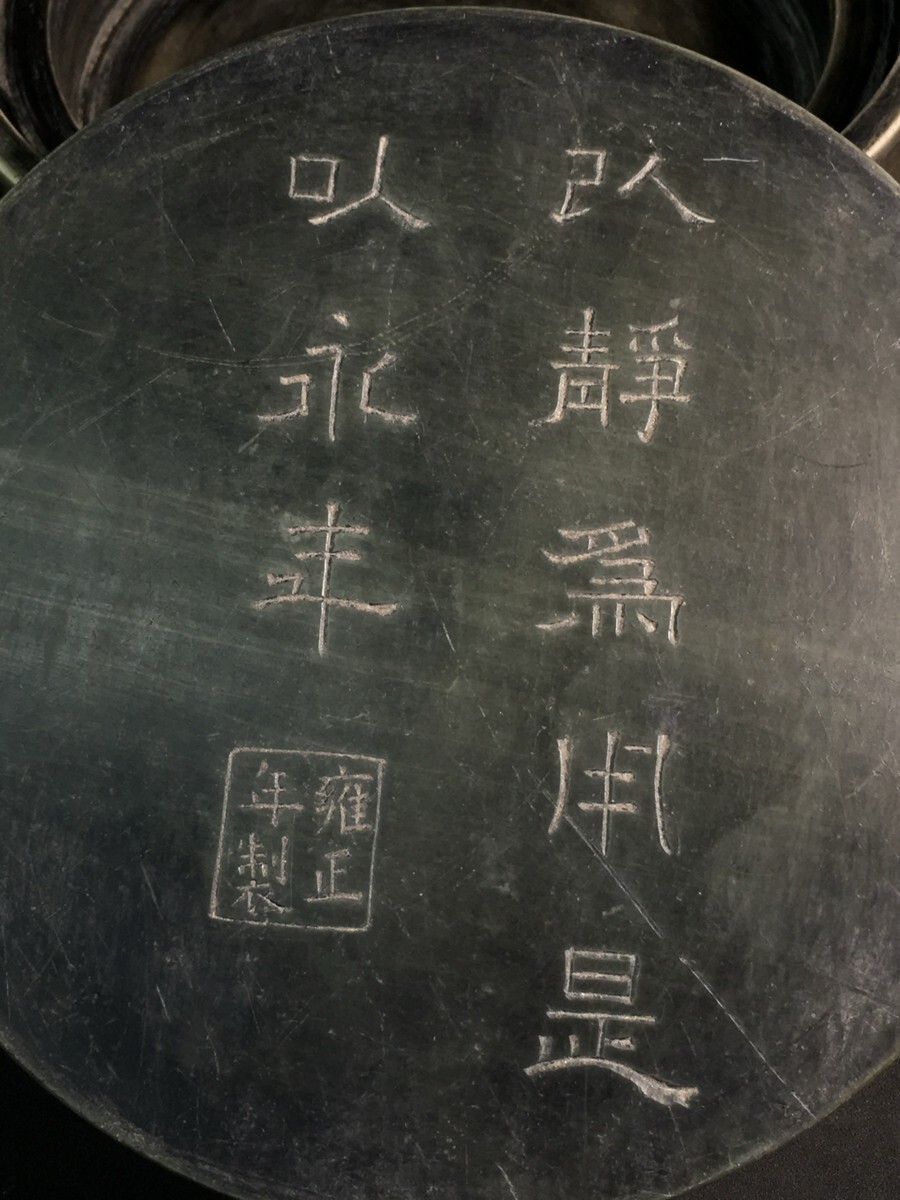 以靜爲用是
以永年
雍正
年製